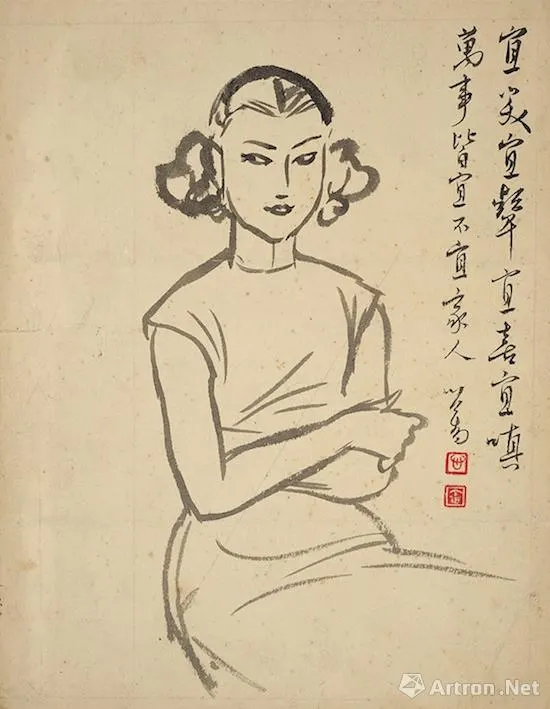 宜笑宜顰宜喜宜嗔
萬事皆宜不宜家人 心畬
Artron.Net